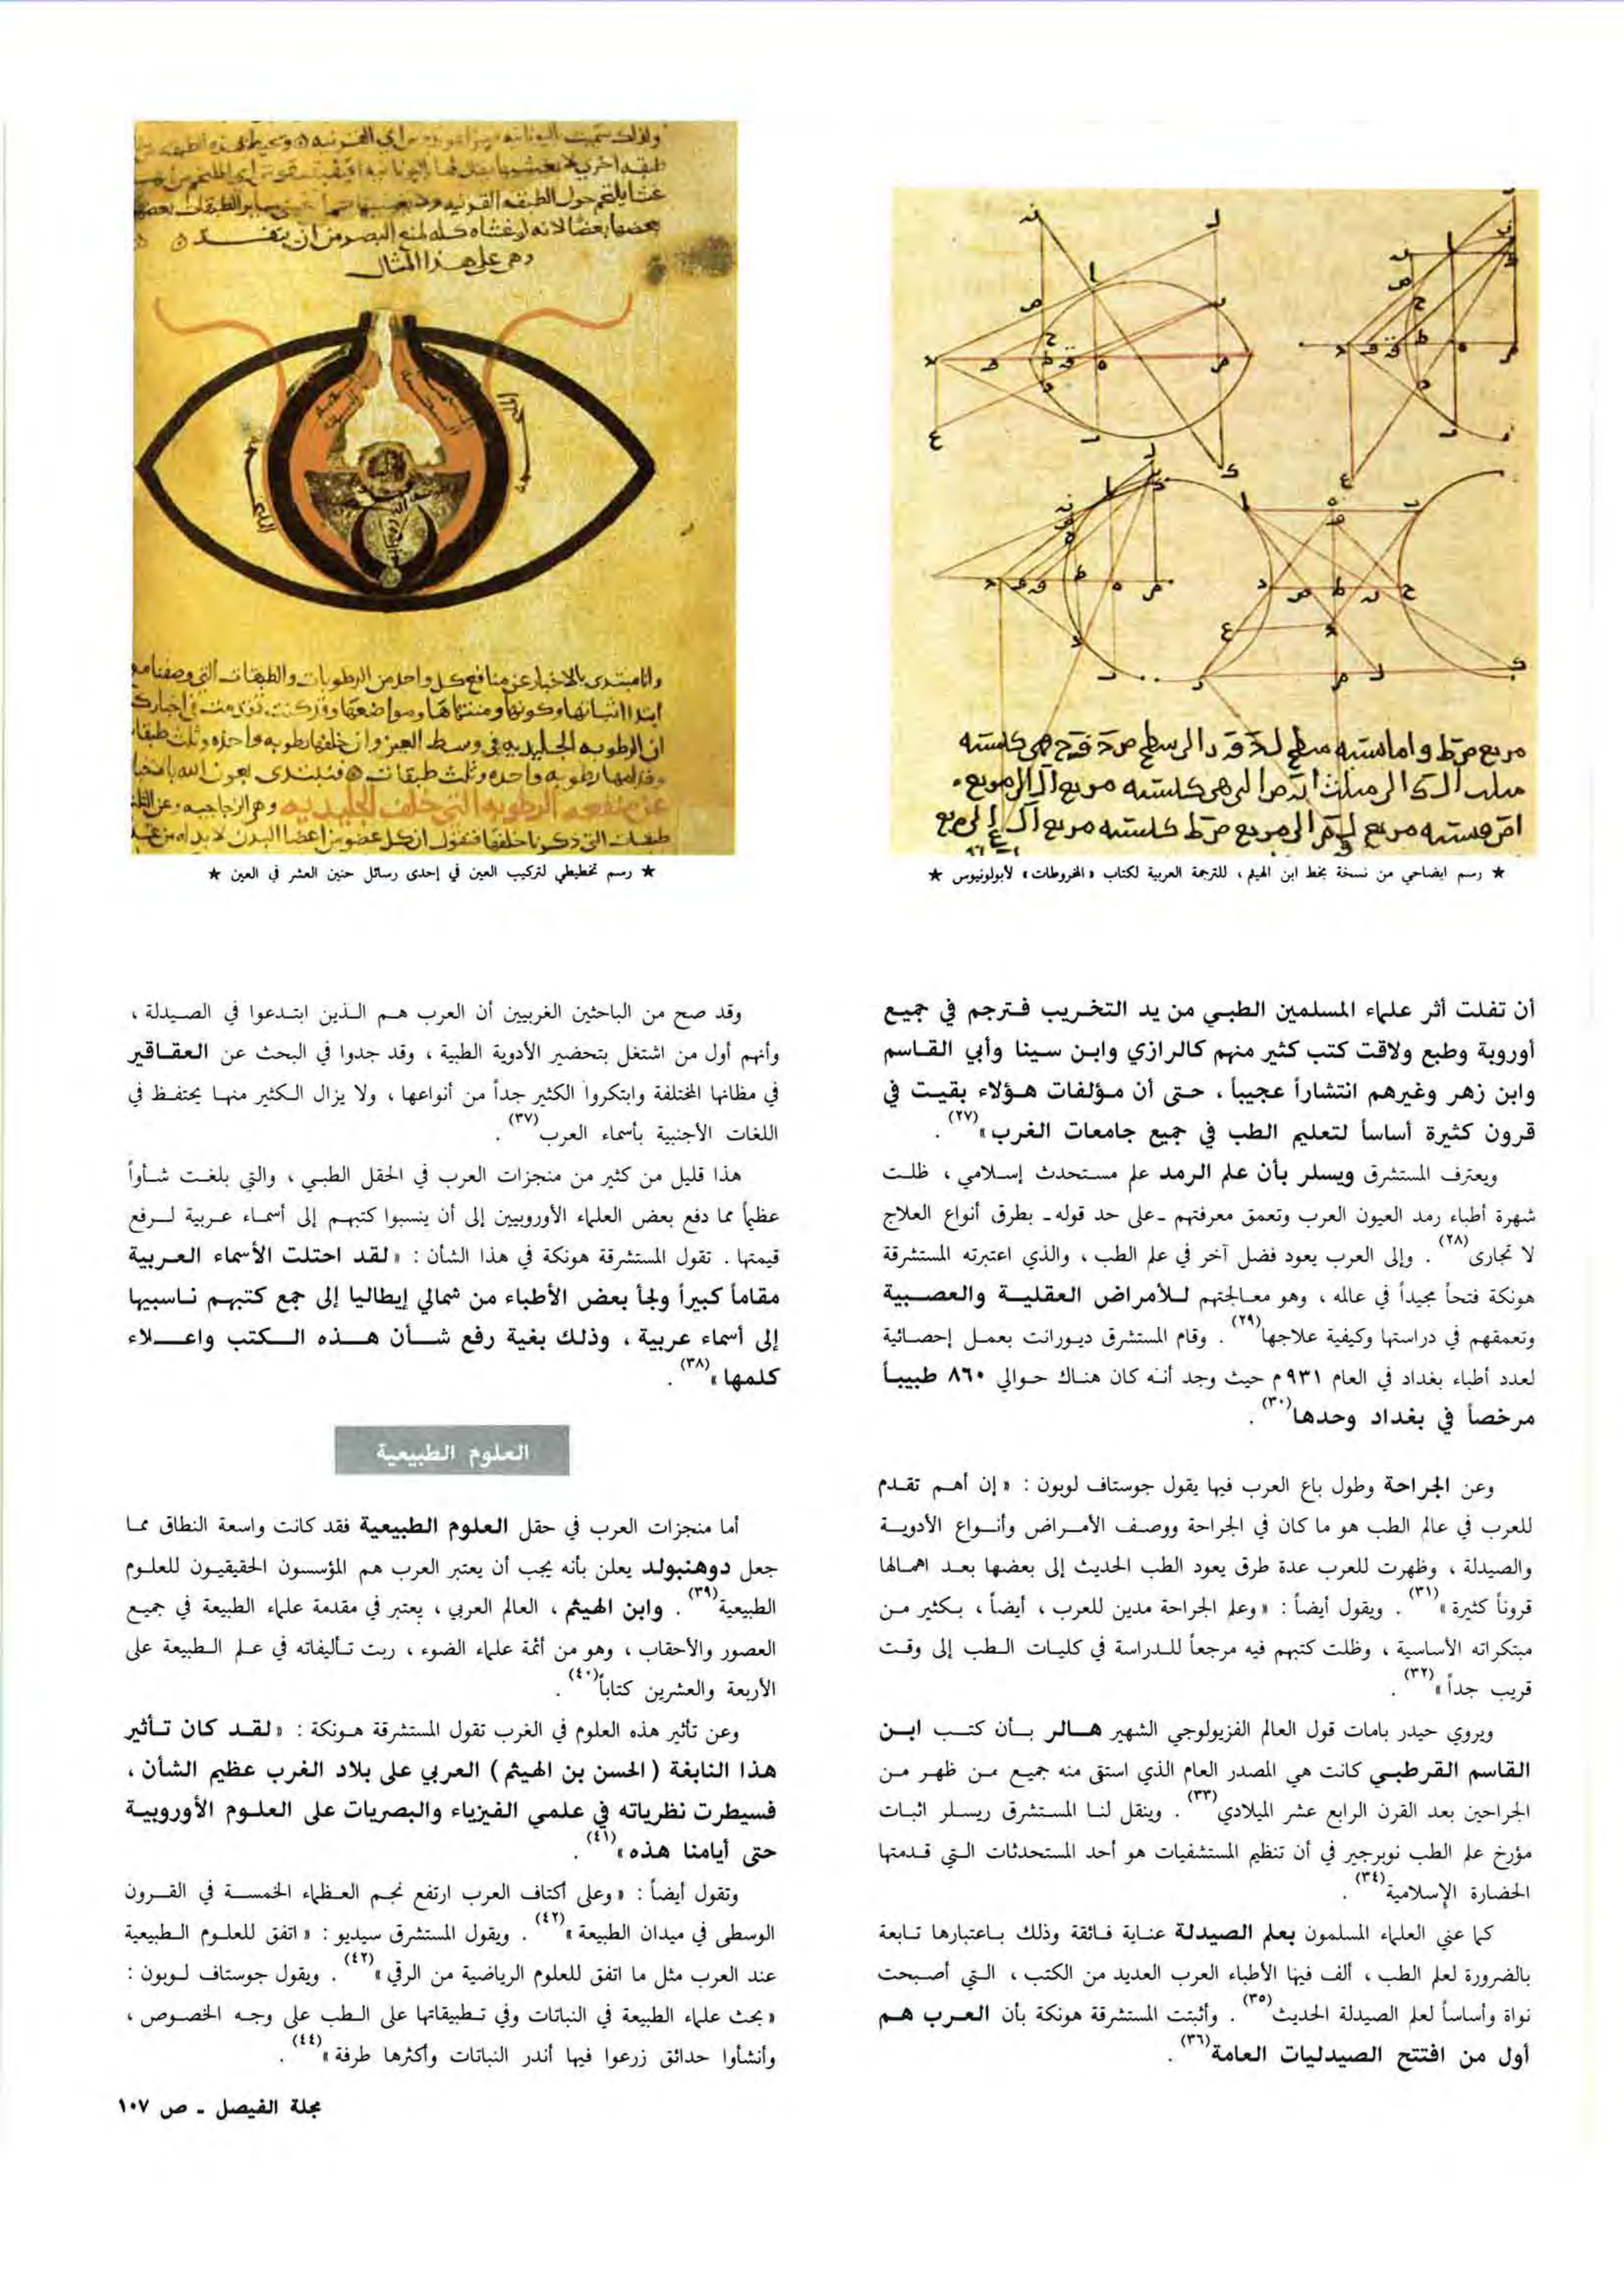 ★ رسم ايضاحي من نسخة بخط ابن الهيثم ، للترجمة العربية لكتاب « المخروطات » لأبولونيوس ★
أن تفلت أثر علماء المسلمين الطبي من يد التخريب فترجم في جميع
أوروبة وطبع ولاقت كتب كثير منهم كالرازي وابن سينا وأبي القاسم
وابن زهر وغيرهم انتشاراً عجيباً ، حتى أن مؤلفات هؤلاء بقيت في
قرون كثيرة أساساً لتعليم الطب في جميع جامعات الغرب »(٢٧) .
ويعترف المستشرق ويسلر بأن علم الرمد علم مستحدث إسلامي ، ظلت
شهرة أطباء رمد العيون العرب وتعمق معرفتهم ـ على حد قوله ـ بطرق أنواع العلاج
لا تجارى(٢٨) . وإلى العرب يعود فضل آخر في علم الطب ، والذي اعتبرته المستشرقة
هونكة فتحاً مجيداً في عالمه ، وهو معالجتهم للأمراض العقلية والعصبية
وتعمقهم في دراستها وكيفية علاجها(٢٩) . وقام المستشرق ديورانت بعمل إحصائية
لعدد أطباء بغداد في العام ٩٣١ م حيث وجد أنه كان هناك حوالي ٨٦٠ طبيباً
مرخصاً في بغداد وحدها(٣٠) .
وعن الجراحة وطول باع العرب فيها يقول جوستاف لوبون : « إن أهم تقدم
للعرب في عالم الطب هو ما كان في الجراحة ووصف الأمراض وأنواع الأدوية
والصيدلة ، وظهرت للعرب عدة طرق يعود الطب الحديث إلى بعضها بعد اهمالها
قروناً كثيرة »(٣١) . ويقول أيضاً : « وعلم الجراحة مدين للعرب ، أيضاً ، بكثير من
مبتكراته الأساسية ، وظلت كتبهم فيه مرجعاً للدراسة في كليات الطب إلى وقت
قريب جداً »(٣٢) .
ويروي حيدر بامات قول العالم الفزيولوجي الشهير هالر بأن كتب ابن
القاسم القرطبي كانت هي المصدر العام الذي استقى منه جميع من ظهر من
الجراحين بعد القرن الرابع عشر الميلادي(٣٣) . وينقل لنا المستشرق ريسلر اثبات
مؤرخ علم الطب نوبرجير في أن تنظيم المستشفيات هو أحد المستحدثات التي قدمتها
الحضارة الإسلامية(٣٤) .
كما عني العلماء المسلمون بعلم الصيدلة عناية فائقة وذلك باعتبارها تابعة
بالضرورة لعلم الطب ، ألف فيها الأطباء العرب العديد من الكتب ، التي أصبحت
نواة وأساساً لعلم الصيدلة الحديث(٣٥) . وأثبتت المستشرقة هونكة بأن العرب هم
أول من افتتح الصيدليات العامة(٣٦) .
وهي على هذا المثال
★ رسم تخطيطي لتركيب العين في إحدى رسائل حنين العشر في العين ★
وقد صح من الباحثين الغربيين أن العرب هم الذين ابتدعوا في الصيدلة ،
وأنهم أول من اشتغل بتحضير الأدوية الطبية ، وقد جدوا في البحث عن العقاقير
في مظانها المختلفة وابتكروا الكثير جداً من أنواعها ، ولا يزال الكثير منها يحتفظ في
اللغات الأجنبية بأسماء العرب(٣٧) .
هذا قليل من كثير من منجزات العرب في الحقل الطبي ، والتي بلغت شأواً
عظيماً مما دفع بعض العلماء الأوروبيين إلى أن ينسبوا كتبهم إلى أسماء عربية لرفع
قيمتها . تقول المستشرقة هونكة في هذا الشأن : « لقد احتلت الأسماء العربية
مقاماً كبيراً ولجأ بعض الأطباء من شمالي إيطاليا إلى جمع كتبهم ناسبيها
إلى أسماء عربية ، وذلك بغية رفع شأن هذه الكتب واعلاء
كلمها »(٣٨) .
العلوم الطبيعية
أما منجزات العرب في حقل العلوم الطبيعية فقد كانت واسعة النطاق مما
جعل دوهنبولد يعلن بأنه يجب أن يعتبر العرب هم المؤسسون الحقيقيون للعلوم
الطبيعية(٣٩) . وابن الهيثم ، العالم العربي ، يعتبر في مقدمة علماء الطبيعة في جميع
العصور والأحقاب ، وهو من أئمة علماء الضوء ، ربت تأليفاته في علم الطبيعة على
الأربعة والعشرين كتاباً(٤٠) .
وعن تأثير هذه العلوم في الغرب تقول المستشرقة هونكة : « لقد كان تأثير
هذا النابغة ( الحسن بن الهيثم ) العربي على بلاد الغرب عظيم الشأن ،
فسيطرت نظرياته في علمي الفيزياء والبصريات على العلوم الأوروبية
حتى أيامنا هذه »(٤١) .
وتقول أيضاً : « وعلى أكتاف العرب ارتفع نجم العظماء الخمسة في القرون
الوسطى في ميدان الطبيعة »(٤٢) . ويقول المستشرق سيديو : « اتفق للعلوم الطبيعية
عند العرب مثل ما اتفق للعلوم الرياضية من الرقي »(٤٢) . ويقول جوستاف لوبون :
« بحث علماء الطبيعة في النباتات وفي تطبيقاتها على الطب على وجه الخصوص ،
وأنشأوا حدائق زرعوا فيها أندر النباتات وأكثرها طرفة »(٤٤) .
مجلة الفيصل ـ ص ١٠٧